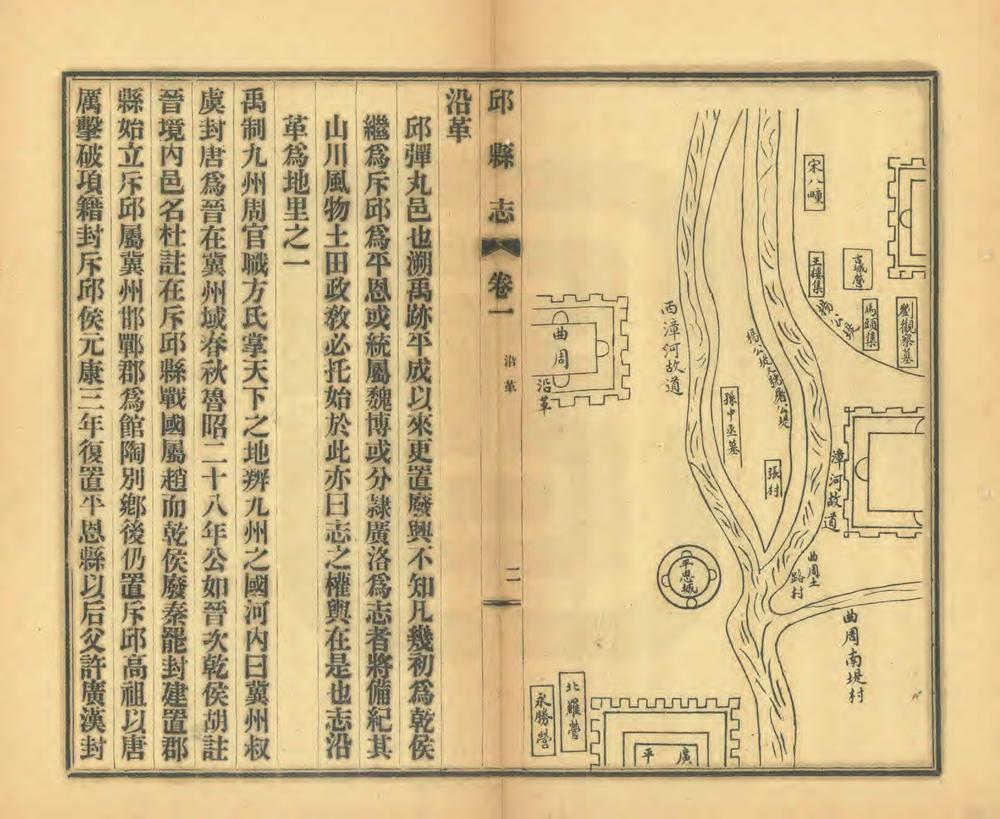 宋八疃
古城營
劉觀察墓
馬頭集
王樓集
楊公堤
西漳河故道
曲周
孫中丞墓
張村
漳河故道
曲周土
路村
曲周南堤村
平恩城
北羅營
永勝營
廣平
沿革
邱縣志
卷一
沿革
二
沿革
邱彈丸邑也溯禹跡平成以來更置廢興不知凡幾初爲乾侯
繼爲斥邱爲平恩或統屬魏博或分隸廣洛爲志者將備紀其
山川風物土田政教必托始於此亦曰志之權輿在是也志沿
革爲地里之一
禹制九州周官職方氏掌天下之地辨九州之國河內曰冀州叔
虞封唐爲晉在冀州域春秋魯昭二十八年公如晉次乾侯胡註
晉境內邑名杜註在斥邱縣戰國屬趙而乾侯廢秦罷封建置郡
縣始立斥邱屬冀州邯鄲郡爲館陶別鄉後仍置斥邱高祖以唐
厲擊破項籍封斥邱侯元康三年復置平恩縣以后父許廣漢封